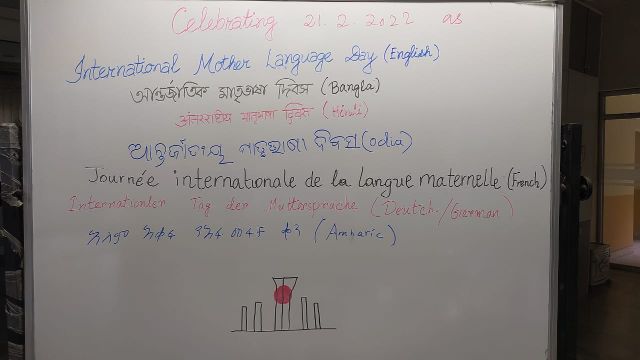 Celebrating 21.2.2022 as
International Mother Language Day (English)
আন্তর্জাতিক মাতৃভাষা দিবস (Bangla)
अंतरराष्ट्रीय मातृभाषा दिवस (Hindi)
ଆନ୍ତର୍ଜାତୀୟ ମାତୃଭାଷା ଦିବସ (Odia)
Journée internationale de la langue maternelle (French)
Internationlen Tag der Muttersprache (Deutch/German)
(Amharic)